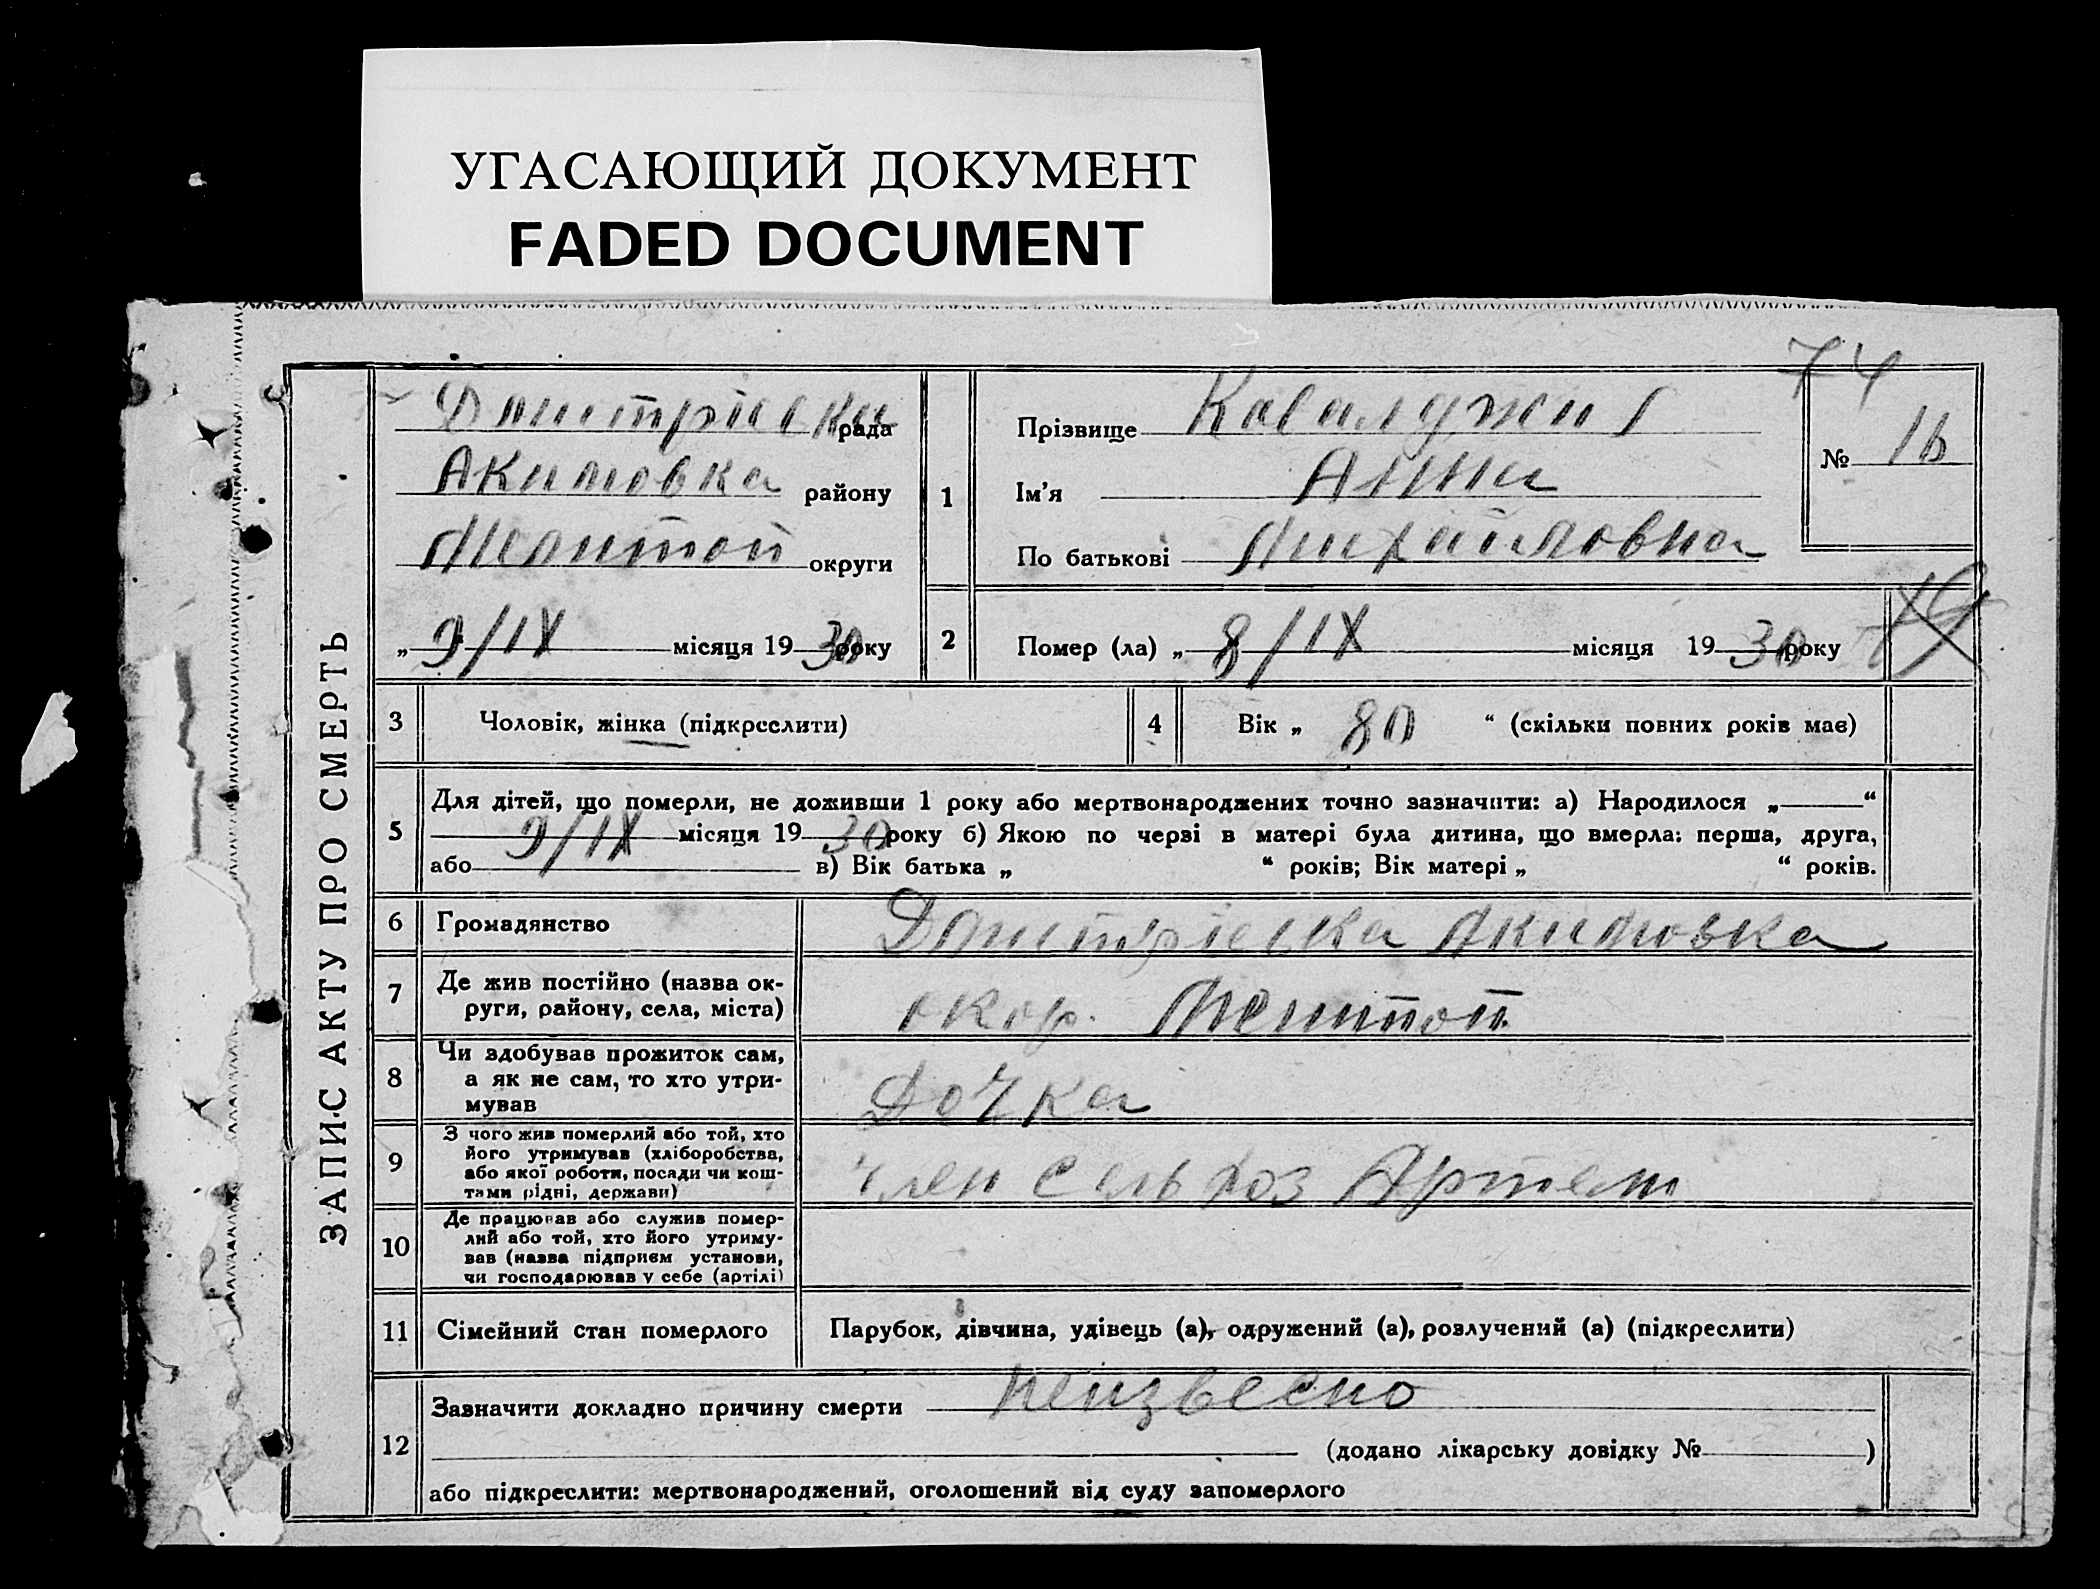 УГАСАЮЩИЙ ДОКУМЕНТ
FADED DOCUMENT
74
ЗАПИС АКТУ ПРО СМЕРТЬ
Дмитрівка рада
Акимовка району
Мелитоп округи
„ 9/IX місяця 19 30 року
1
Прізвище
Ім'я Анна
По батькові Михайловна
№ 16
2
Помер (ла) „ 8/IX місяця 19 30 року
3 Чоловік, жінка (підкреслити)
4 Вік „ 80 “ (скільки повних років має)
5
Для дітей, що померли, не доживши 1 року або мертвонароджених точно зазначити: а) Народилося „ “
9/IX місяця 19 30 року б) Якою по черзі в матері була дитина, що вмерла: перша, друга,
або в) Вік батька „ “ років; Вік матері „ “ років.
6 Громадянство Дмитрієвка Акимовка
7 Де жив постійно (назва ок-
руги, району, села, міста) окр. Мелитоп.
8 Чи здобував прожиток сам,
а як не сам, то хто утри-
мував Дочка
9 З чого жив померлий або той, хто
його утримував (хліборобства,
або якої роботи, посади чи кош-
тами рідні, держави) член Сельхоз Артели
10 Де працював або служив помер-
лий або той, хто його утриму-
вав (назва підприєм установи,
чи господарював у себе (артілі)
11 Сімейний стан померлого Парубок, дівчина, удівець (а), одружений (а), розлучений (а) (підкреслити)
12
Зазначити докладно причину смерти неизвесно
(додано лікарську довідку № )
або підкреслити: мертвонароджений, оголошений від суду запомерлого